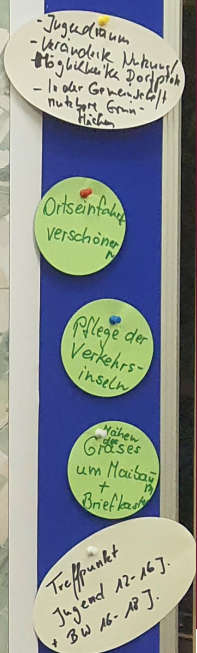 - Jugendraum
- Veränderte Nutzung
- Möglichkeiten Dorfplatz
- In der Gemeinschaft
nutzbare Grün-
flächen
Ortseinfahrt
verschönern
Pflege der
Verkehrs-
inseln
Mähen
des
Grases
um Maibaum
+
Briefkasten
Treffpunkt
Jugend 12-16 J.
+ BW 16-18 J.